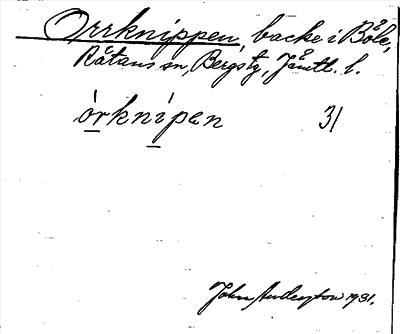 Orrknippen, backe i Böle,
Rätans sn, Bergs tg, Jämtl. l.
òrknípen 31
John Anderzon 1931.